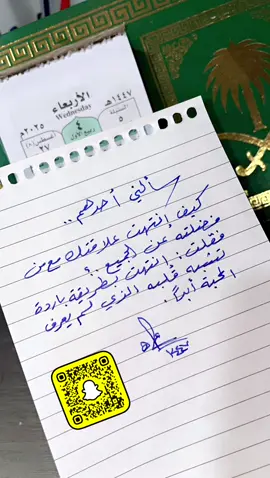 ١٤٤٧هـ
٢٠٢٥م
الأربعاء
Wednesday
٤
ربيع الأول
٥
أغسطس (٨)
٢٧
سألني أحدهم ..
كيف انتهت علاقتك مع من
فضلته عن الجميع
فقلت : انتهت بطريقة باردة
تشبه قلبه الذي لم يعرف
المحبة أبداً .